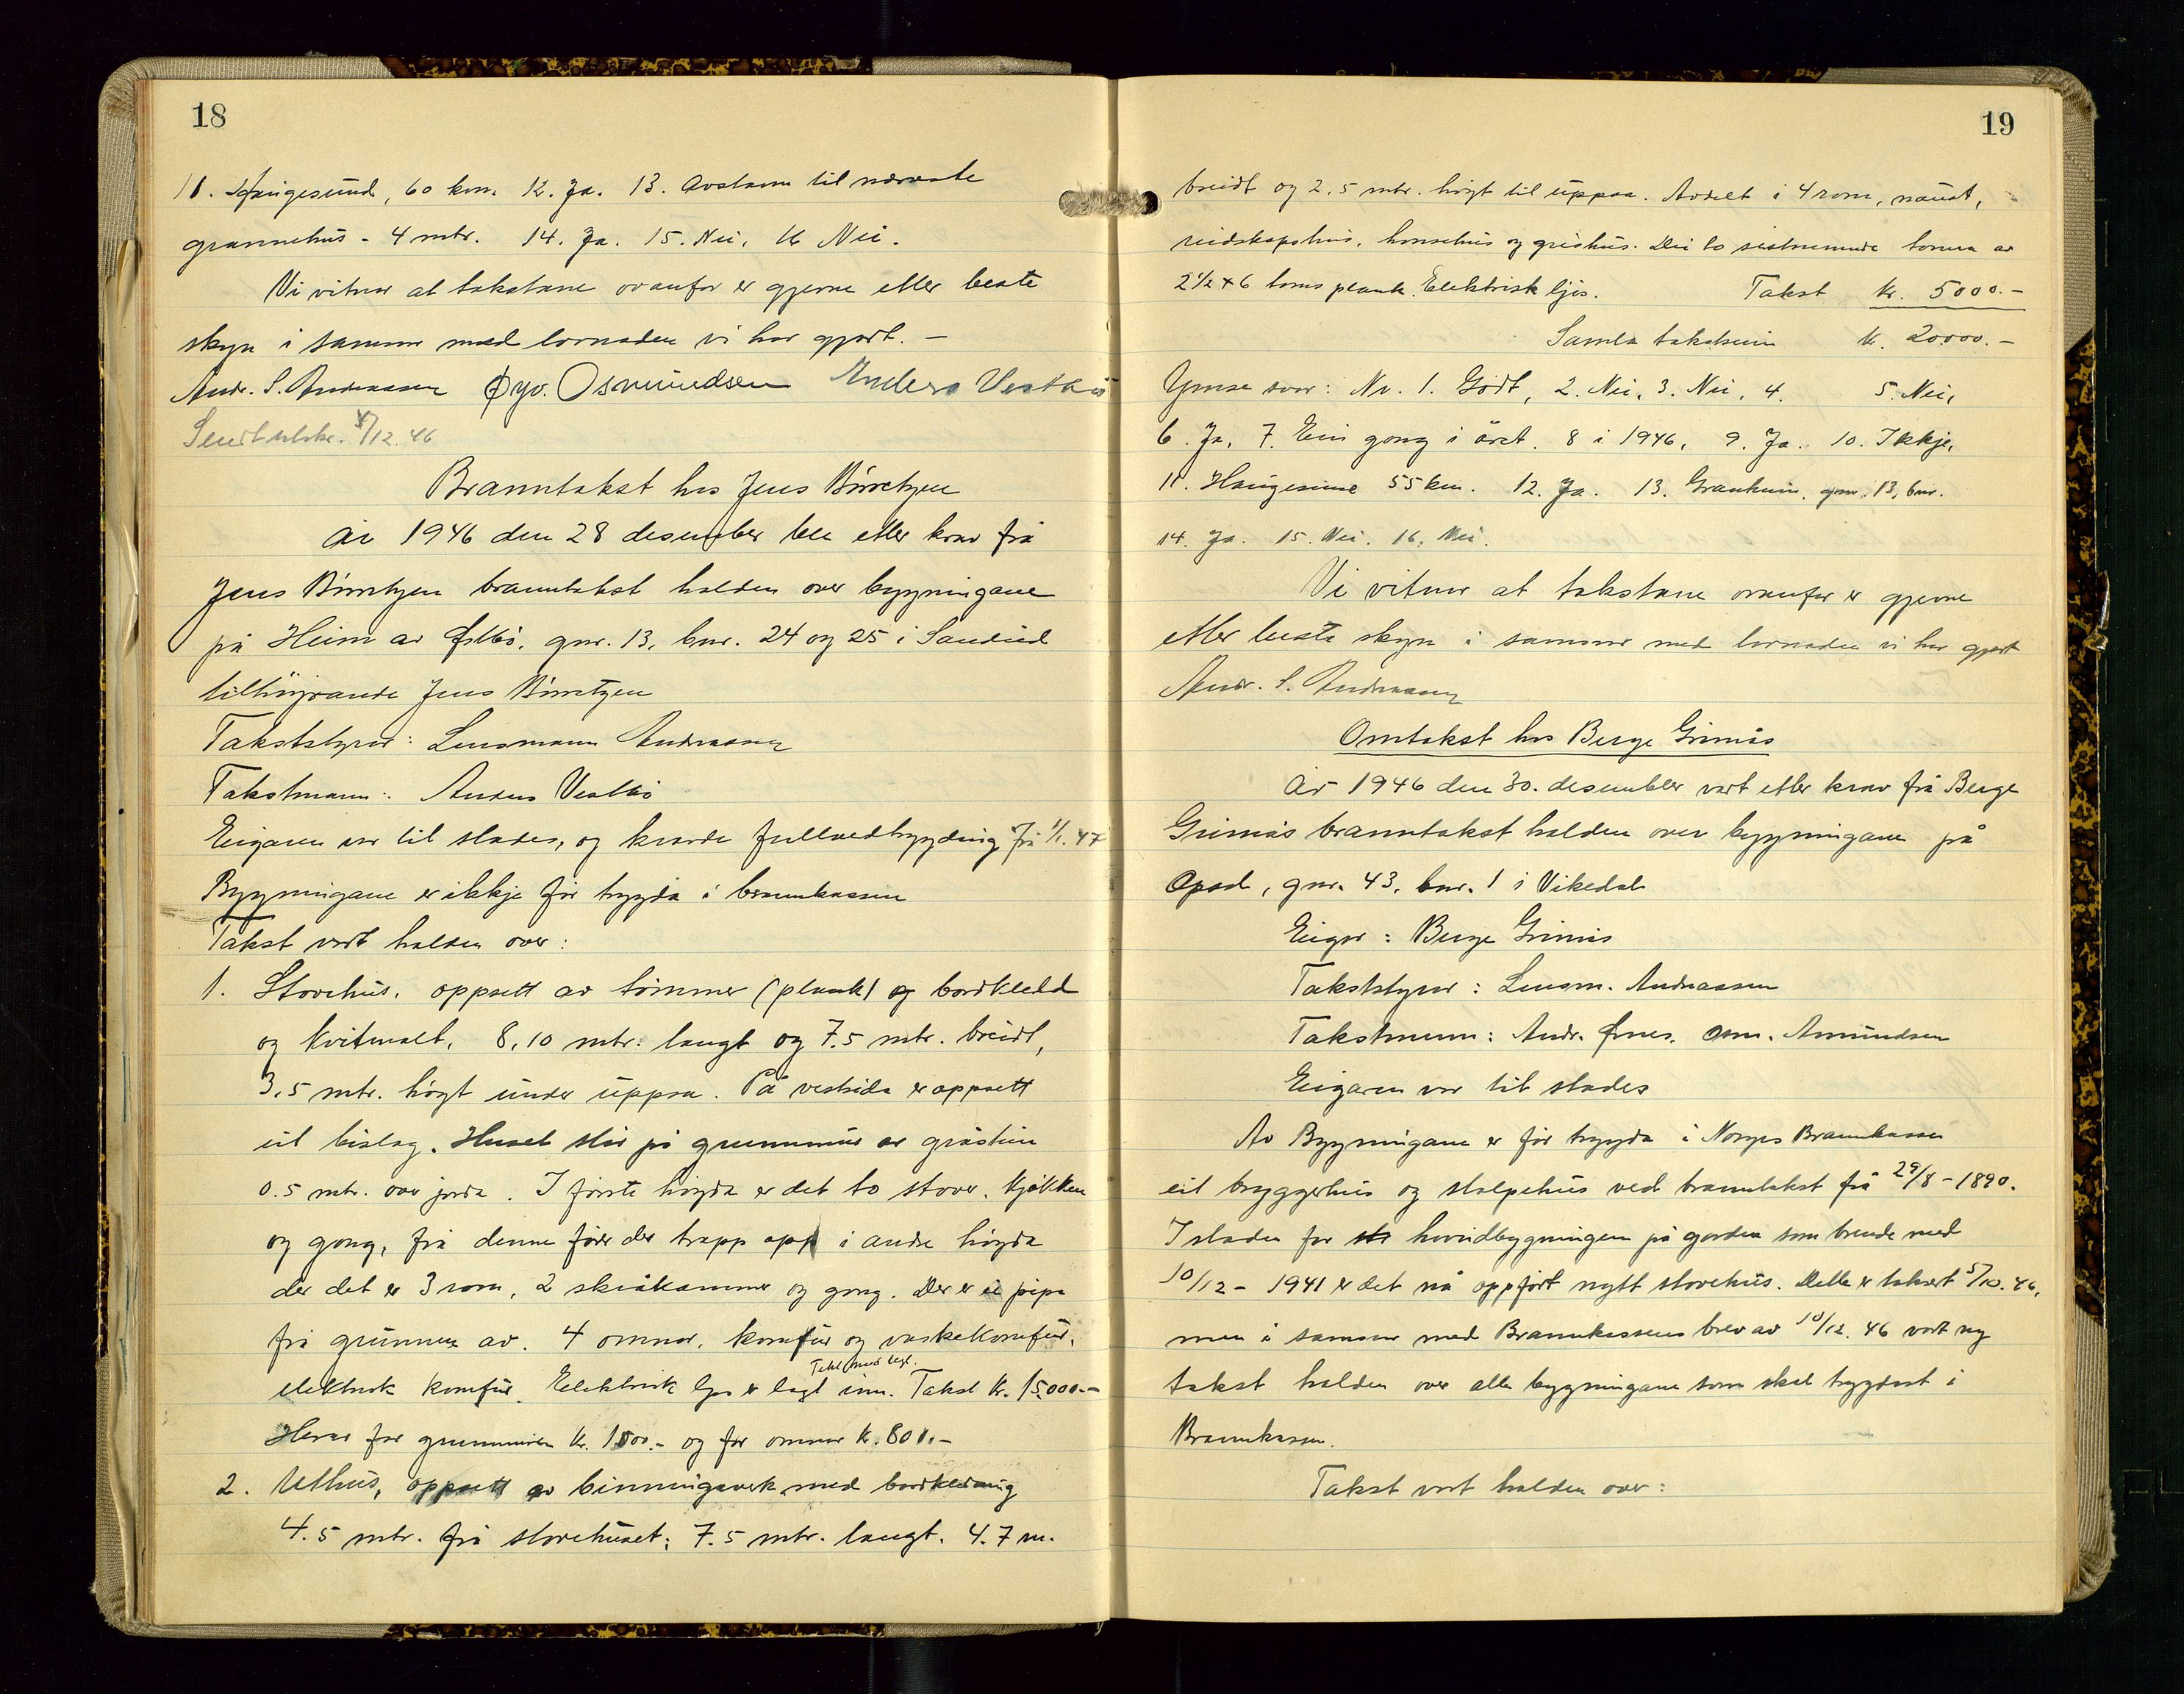 18
11. Haugesund, 60 km. 12. Ja. 13. Avstann til næraste
grannehus - 4 mtr. 14. Ja. 15. Nei. 16 Nei.
Vi vitnar at takstane ovanfor er gjevne etter beste
skyn i samsvar med lovnaden vi har gjort. —
Andr. S. Andreassen Øyv. Osmundsen Anders Vestbö
Sendt utskr. /12.46
Branntakst hos Jens
År 1946 den 28 desember ble etter krav frå
Jens branntakst halden over bygningane
på Heim av Østbö, gnr. 13, bnr. 24 og 25 i Sandeid
tilhöyrande Jens
Takststyrar: Lensmann Andreassen
Takstmann: Anders Vestbö
Eigaren var til stades, og kravde fullverdtrygding frå 1/1. 47
Bygningane er ikkje för trygda i brannkassen
Takst vart halden over:
1. Stovehus, oppsett av tömmer (plank) og bordkledd
og kvitmalt, 8,10 mtr. langt og 7.5 mtr. breidt,
3,5 mtr. högt under uppsa. På vestsida er oppsett
eit bislag. Huset står på grunnmur av gråstein
0.5 mtr. over jorda. I förste högda er det to stover, kjökken
og gong, frå denne förer der trapp opp i andre högda
der det er 3 rom, 2 skråkammer og gong. Der er ei pipe
frå grunnen av. 4 omnar, komfur og vaskekomfur,
elektrisk komfur. Elektrisk ljos er lagt inn. Tekt med tegl. Takst kr. 15,000.-
Herav for grunnmuren kr. 1500.- og for omnar kr. 800.-
2. Uthus, oppsett av binningsverk med bordkledning
4.5 mtr. frå stovehuset; 7.5 mtr. langt. 4.7 m.
19
breidt og 2,5 mtr. högt til uppsa. Avdelt i 4 rom, naust,
reidskapshus, hønsehus og grishus. Dei to sistnemnde tomra av
2 1/2 x 6 toms plank. Elektrisk ljos. Takst kr. 5000.-
Samla takstsum kr. 20.000.-
Ymse svar: Nr. 1. Godt, 2. Nei, 3. Nei, 4. 5. Nei,
6. Ja, 7. Ein gong i året. 8 i 1946, 9. Ja. 10. Ikkje,
11. Haugesund 55 km. 12. Ja. 13. gnr. 13, bnr.
14. Ja. 15. Nei. 16. Nei.
Vi vitnar at takstane ovanfor er gjevne
etter beste skyn i samsvar med lovnaden vi har gjort
Andr. S. Andreassen
Omtakst hos Berge Grimås
År 1946 den 30. desember vart etter krav frå Berge
Grimås branntakst halden over bygningane på
Opsal, gnr. 43, bnr. 1 i Vikedal
Eigar: Berge Grimås
Takststyrar: Lensm. Andreassen
Takstmenn: Andr. Ørnes. Osm. Amundsen
Eigaren var til stades
Av Bygningane er för trygda i Norges Brannkasse
eit bryggerhus og stolpehus ved branntakst frå 29/8 - 1890.
I staden for hovudbygningen på garden som brende ned
10/12 - 1941 er det nå oppfört nytt stovehus. Dette er taksert 5/10. 46,
men i samsvar med Brannkassens brev av 10/12. 46 vart ny
takst halden over alle bygningane som skal trygdast i
Brannkassen.
Takst vart halden over: